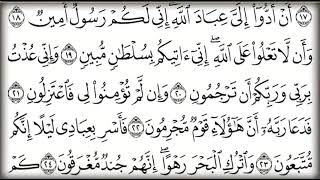 ١٧ أَنْ أَدُّوٓا۟ إِلَىَّ عِبَادَ ٱللَّهِ إِنِّى لَكُمْ رَسُولٌ أَمِينٌ ١٨
وَأَن لَّا تَعْلُوا۟ عَلَى ٱللَّهِ إِنِّىٓ ءَاتِيكُم بِسُلْطَٰنٍ مُّبِينٍ ١٩ وَإِنِّى عُذْتُ
بِرَبِّى وَرَبِّكُمْ أَن تَرْجُمُونِ ٢٠ وَإِن لَّمْ تُؤْمِنُوا۟ لِى فَٱعْتَزِلُونِ ٢١
فَدَعَا رَبَّهُۥٓ أَنَّ هَٰٓؤُلَآءِ قَوْمٌ مُّجْرِمُونَ ٢٢ فَأَسْرِ بِعِبَادِى لَيْلًا إِنَّكُم
مُّتَّبَعُونَ ٢٣ وَٱتْرُكِ ٱلْبَحْرَ رَهْوًا إِنَّهُمْ جُندٌ مُّغْرَقُونَ ٢٤ كَمْ